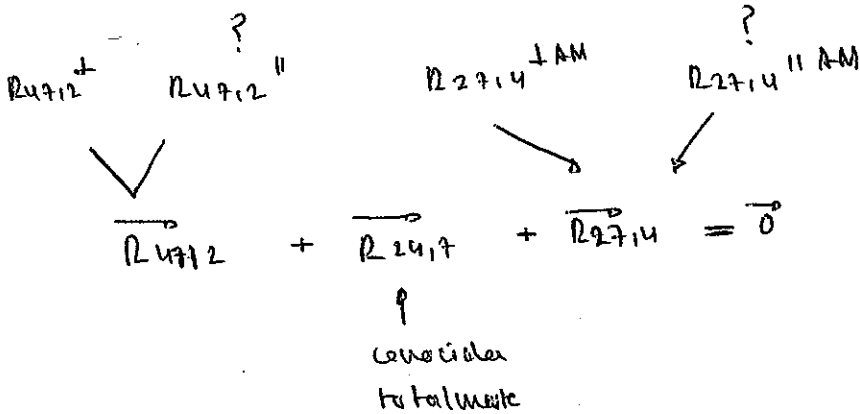 ? ?
R47,2⊥ R47,2∥ R27,4⊥AM R27,4∥AM
R47,2 + R24,7 + R27,4 = 0
conocida
totalmente